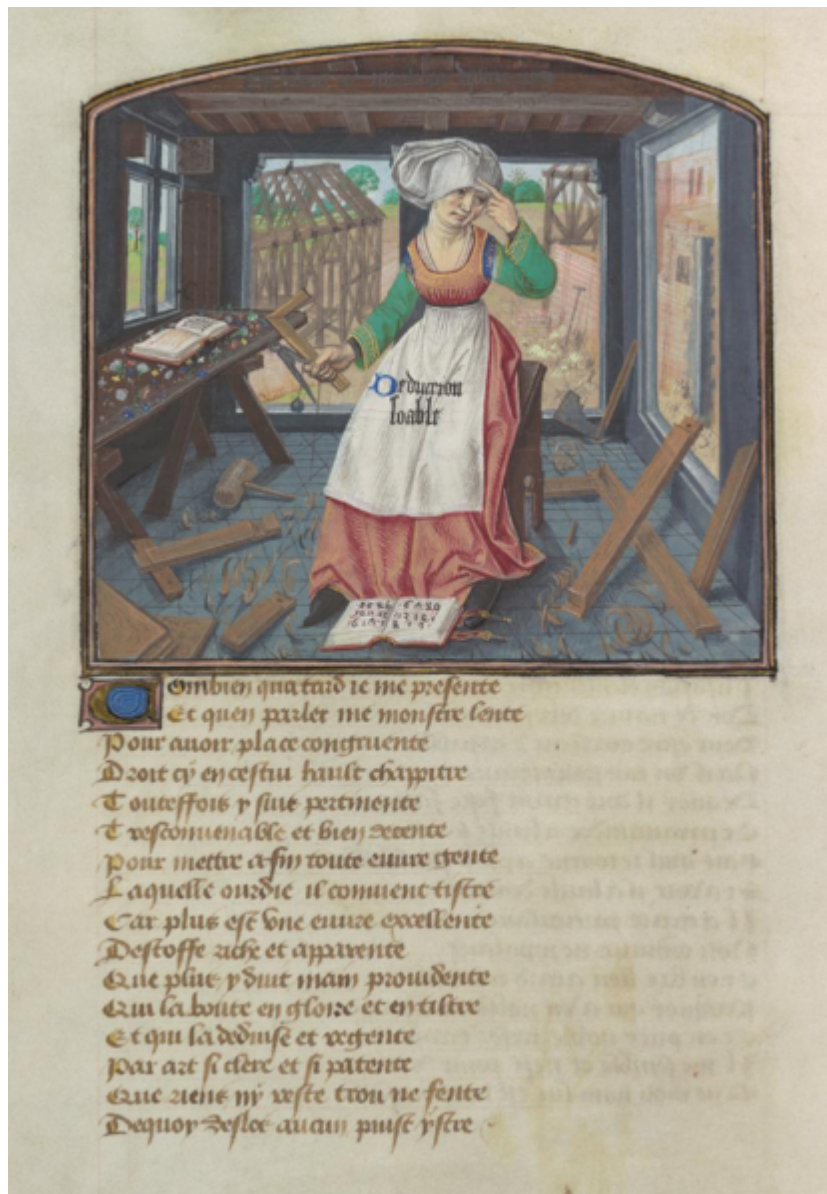 Deduction
loable
Combien qua tard ie me presente
Et quen parler me monstre lente
Pour auoir place congruente
Droit cy en cestui hault chappitre
Toutesfois y suis pertinente
Tresconuenable et bien decente
Pour mettre a fin toute euure gente
Laquelle ourdie il conuient tistre
Car plus est vne euure excellente
Destoffe riche et apparente
Que plus y duit main prouidente
Qui la boute en gloire et en tiltre
Et qui la deduise et regente
Par art si clere et si patente
Que riens ny reste trou ne fente
Dequoy desloc aucun puist ystre